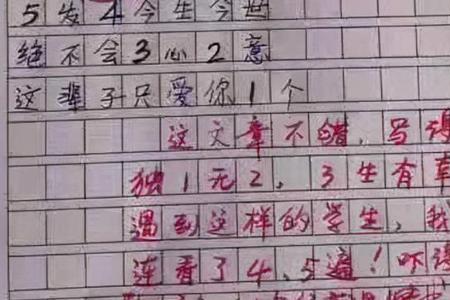 5发4今生今世
绝不会3心2意
这辈子只爱你1个
这文章不错,写得
独1无2,3生有幸
遇到这样的学生,我
连看了4、5遍!吓得